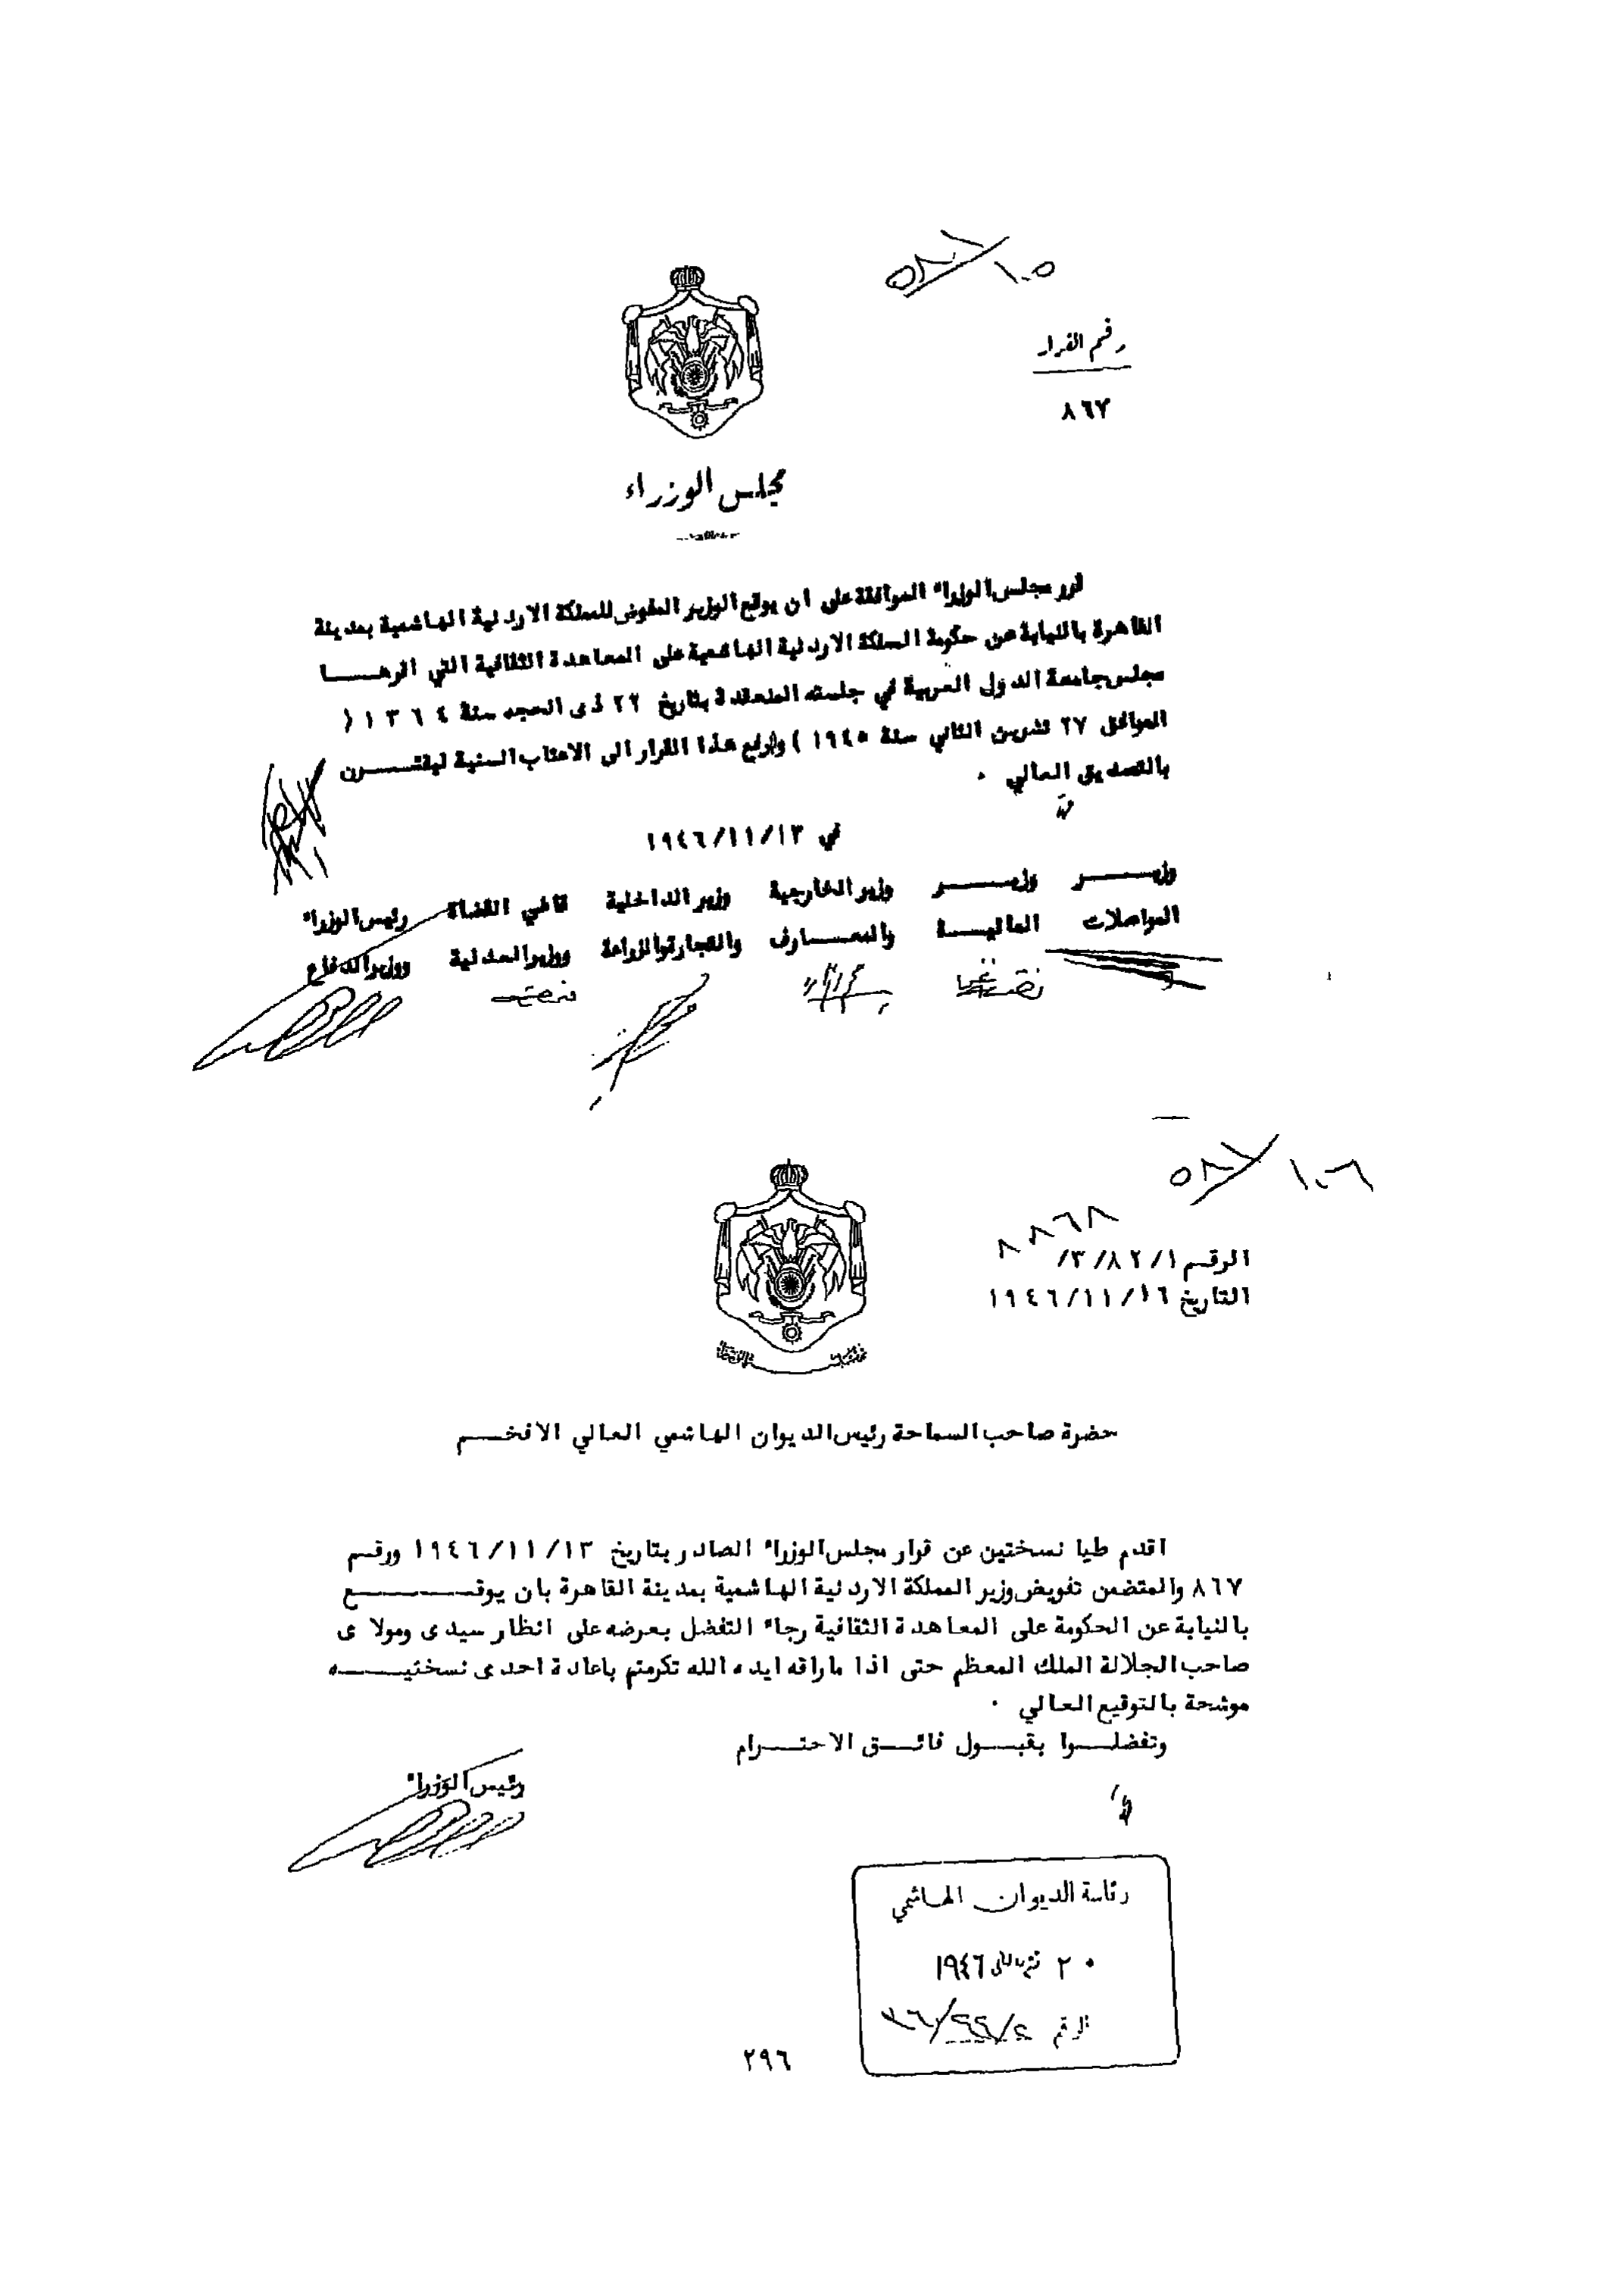 ١٠٥ / ٥٨٧
رقم القرار
٨٦٧
مجلس الوزراء
قرر مجلس الوزراء الموافقة على ان يوقع الوزير المفوض للمملكة الاردنية الهاشمية بمدينة
القاهرة بالنيابة عن حكومة المملكة الاردنية الهاشمية على المعاهدة الثقافية التي اقرهـــا
مجلس جامعة الدول العربية في جلسته المنعقدة بتاريخ ٢٢ ذى الحجه سنة ١٣٦٤ (
الموافق ٢٧ تشرين الثاني سنة ١٩٤٥ ) ورفع هذا القرار الى الاعتاب السنية ليقتـــرن
بالتصديق العالي ٠
في ١٩٤٦/١١/١٣
وزيــــر وزيــــر وزير الخارجية وزير الداخلية قاضي القضاة رئيس الوزراء
المواصلات الماليـــة والمعـــارف والتجارة والزراعة ووزير العدلية ووزير الدفاع
١٠٦ / ٥٨٧
٨٨٦٨
الرقم ٣/٨٢/١/
التاريخ ١٩٤٦/١١/١٦
حضرة صاحب السماحة رئيس الديوان الهاشمي العالي الافخـــم
اقدم طيا نسختين عن قرار مجلس الوزراء الصادر بتاريخ ١٩٤٦/١١/١٣ ورقم
٨٦٧ والمتضمن تفويض وزير المملكة الاردنية الهاشمية بمدينة القاهرة بان يوقـــــع
بالنيابة عن الحكومة على المعاهدة الثقافية رجاء التفضل بعرضه على انظار سيدى ومولاى
صاحب الجلالة الملك المعظم حتى اذا ما راقه ايده الله تكرمتم باعادة احدى نسختيــــه
موشحة بالتوقيع العالي ٠
وتفضلـــوا بقبـــول فائـــق الاحتـــرام
رئيس الوزراء
رئاسة الديوان الهاشمي
٢٠ ١٩٤٦
الرقم
٢٩٦